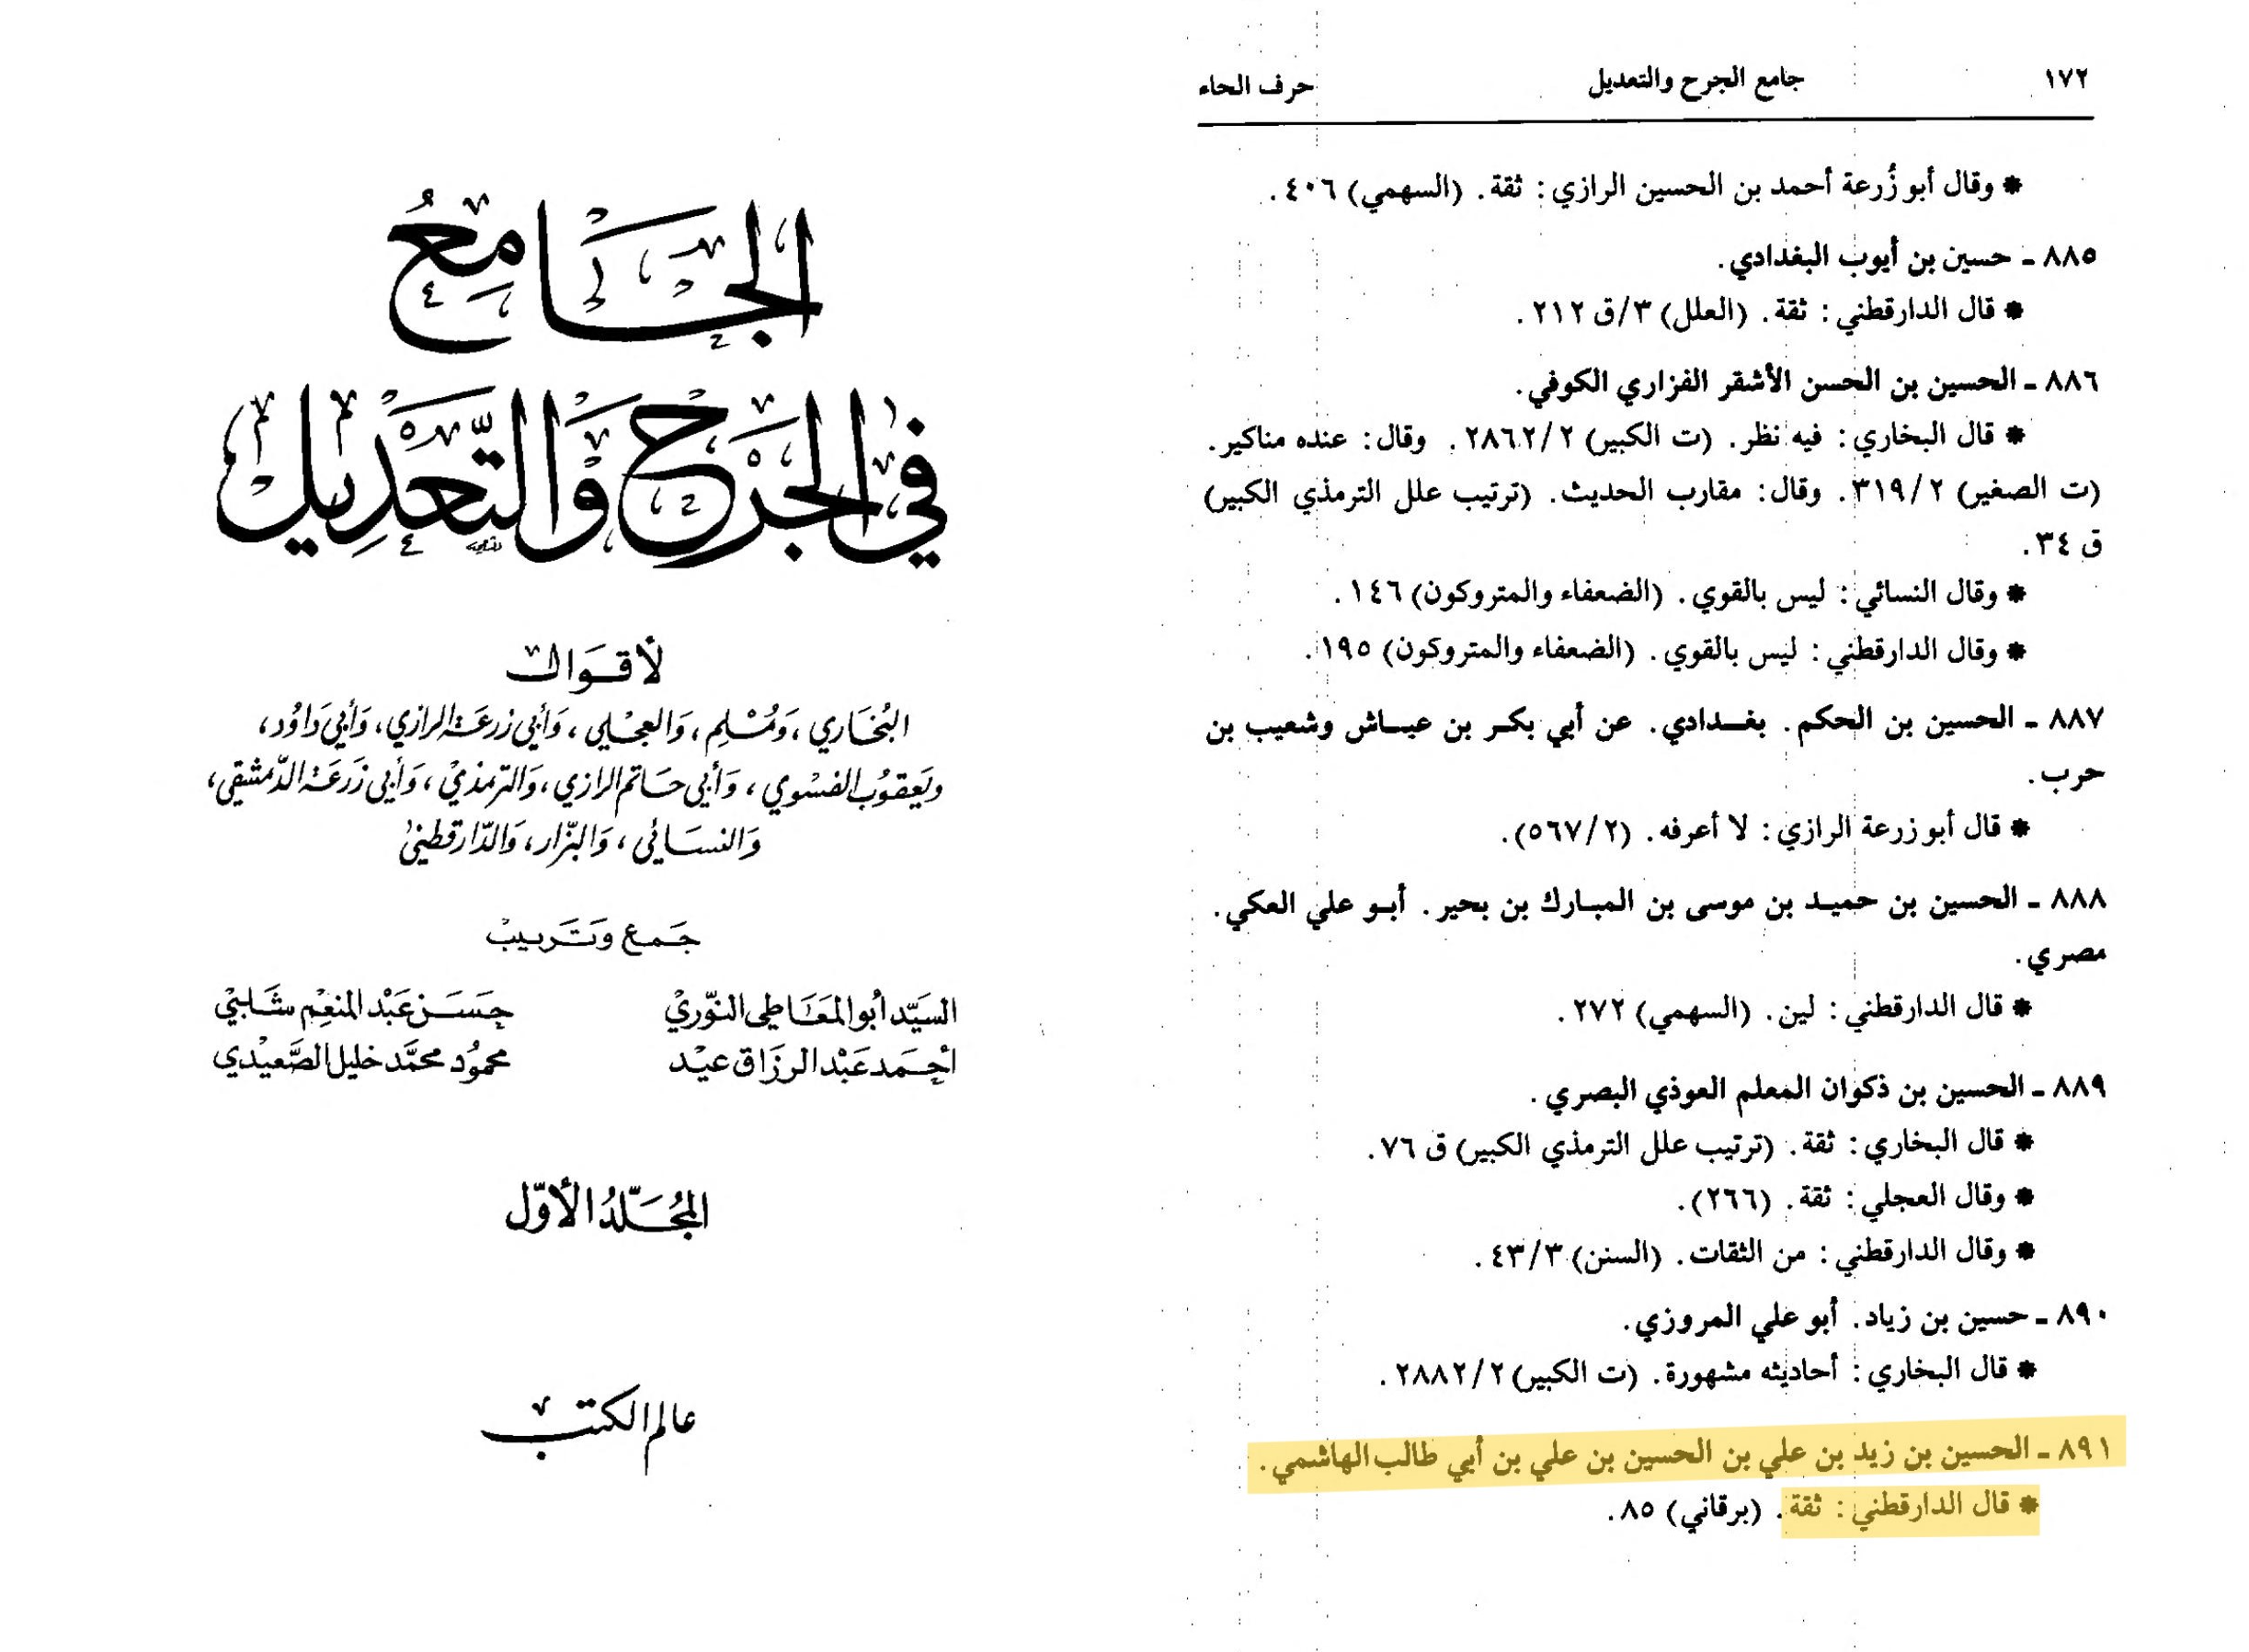 الجامع
في الجرح والتعديل
لأقوال
البُخَاري، وَمُسْلِم، وَالعِجْلي، وَأبي زرعَة الرازي، وَأبي دَاوُد،
ويَعقوُب الفسْوي، وَأبي حَاتم الرازي، وَالترمذيْ، وَأبي زَرعَة الدّمشقي،
وَالنسَائي، وَالبزّار، وَالدّارقطنيْ
جَمع وَتَرتيبْ
السَيّد أبو المعَاطي النّوريْ
حَسَن عَبْد المنعِم شَلبيْ
أحمَد عَبْد الرزَاق عيْد
محموُد محمَّد خليل الصَّعيْدي
المُجَلّدُ الأوّل
عالم الكتب
١٧٢
جامع الجرح والتعديل
حرف الحاء
* وقال أبو زُرعة أحمد بن الحسين الرازي: ثقة. (السهمي) ٤٠٦.
٨٨٥ ـ حسين بن أيوب البغدادي.
* قال الدارقطني: ثقة. (العلل) ٣/ق ٢١٢.
٨٨٦ ـ الحسين بن الحسن الأشقر الفزاري الكوفي.
* قال البخاري: فيه نظر. (ت الكبير) ٢٨٦٢/٢. وقال: عنده مناكير.
(ت الصغير) ٣١٩/٢. وقال: مقارب الحديث. (ترتيب علل الترمذي الكبير)
ق ٣٤.
* وقال النسائي: ليس بالقوي. (الضعفاء والمتروكون) ١٤٦.
* وقال الدارقطني: ليس بالقوي. (الضعفاء والمتروكون) ١٩٥.
٨٨٧ ـ الحسين بن الحكم. بغدادي. عن أبي بكر بن عياش وشعيب بن
حرب.
* قال أبو زرعة الرازي: لا أعرفه. (٥٦٧/٢).
٨٨٨ ـ الحسين بن حميد بن موسى بن المبارك بن بحير. أبو علي العكي.
مصري.
* قال الدارقطني: لين. (السهمي) ٢٧٢.
٨٨٩ ـ الحسين بن ذكوان المعلم العوذي البصري.
* قال البخاري: ثقة. (ترتيب علل الترمذي الكبير) ق ٧٦.
* وقال العجلي: ثقة. (٢٦٦).
* وقال الدارقطني: من الثقات. (السنن) ٤٣/٣.
٨٩٠ ـ حسين بن زياد. أبو علي المروزي.
* قال البخاري: أحاديثه مشهورة. (ت الكبير) ٢٨٨٢/٢.
٨٩١ ـ الحسين بن زيد بن علي بن الحسين بن علي بن أبي طالب الهاشمي.
* قال الدارقطني: ثقة. (برقاني) ٨٥.